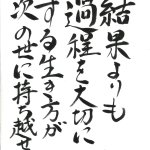 結果よりも
過程を大切に
する生き方が
次の世に持ち越せ